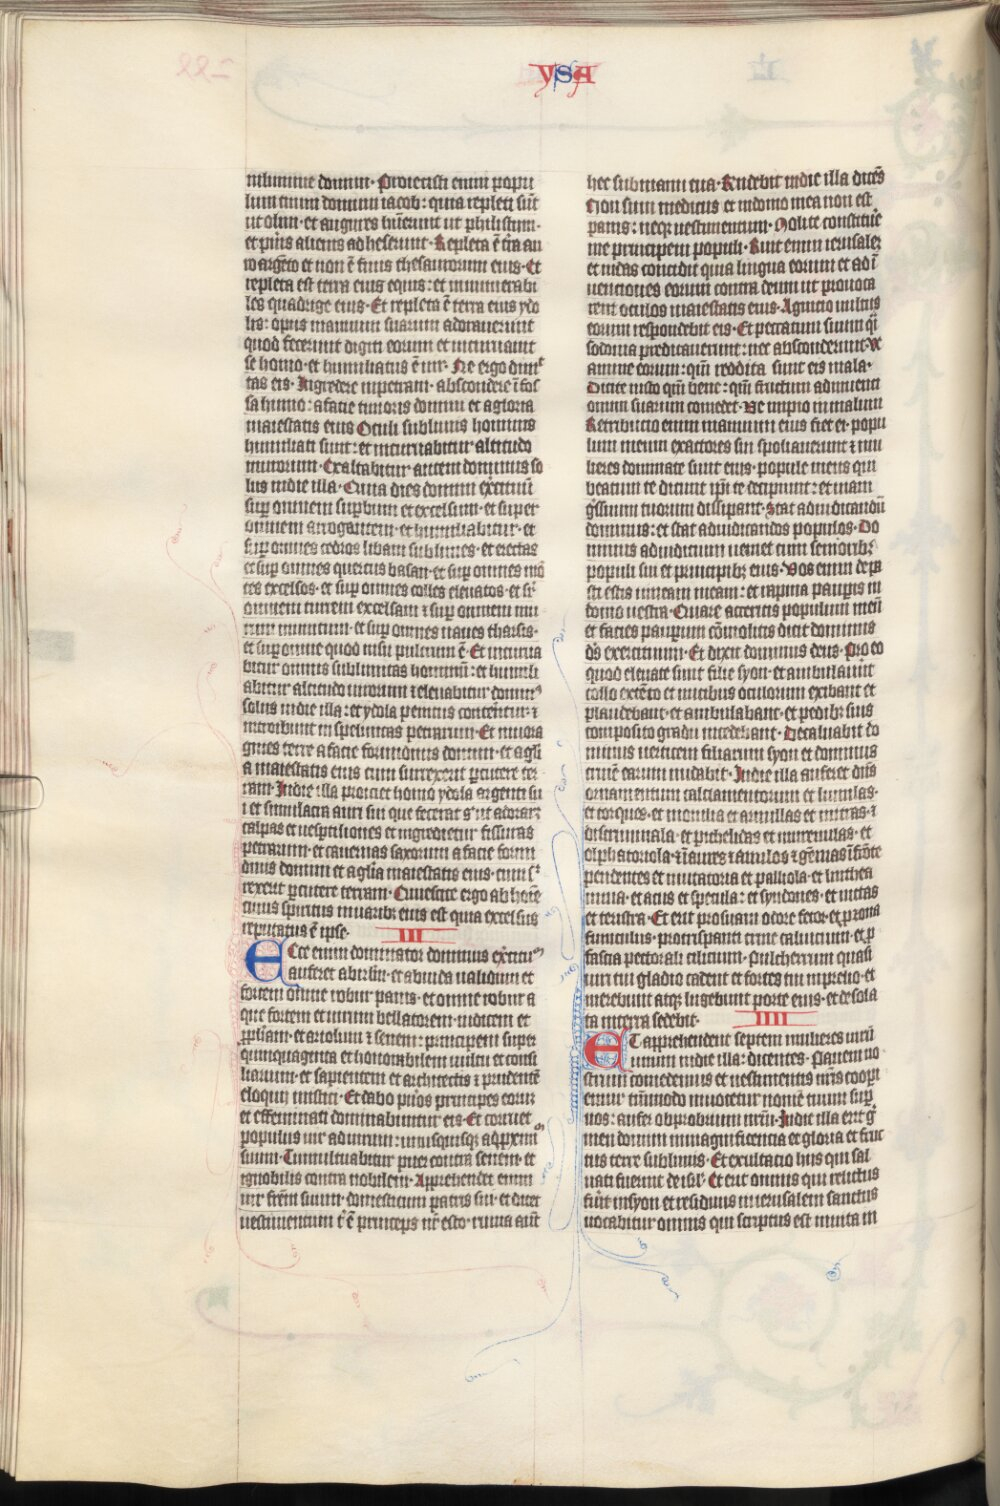 ysa
in lumine domini. Proiecisti enim popu
lum tuum domum iacob: quia repleti sūt
ut olim. et augures hūerunt ut philistiim.
et pūis alienis adheserunt. Repleta ē t̄ra au
ro argēto et non ē finis thesaurorum eius. Et
repleta est terra eius equis: et innumerabi
les quadrige eius. Et repleta ē terra eius ydo
lis: opus manuum suarum adorauerunt
quod fecerunt digiti eorum et incuruauit
se homo. et humiliatus ē uir. Ne ergo dimit
tas eis. Ingredere in petram. abscondere ī fos
sa humo: a facie timoris domini et a gloria
maiestatis eius Oculi sublimis hominis
humiliati sunt: et incuruabitur altitudo
uirorum. Exaltabitur autem dominus so
lus in die illa. Quia dies domini exercituū
sup̄ omnem superbum et excelsum. et super
omnem arrogantem. et humiliabitur. et
sup̄ omnes cedros libani sublimes. et erectas
et sup̄ omnes quercus basan. et sup̄ omnes mō
tes excelsos. et sup̄ omnes colles eleuatos. et sr̄
omnem turrem excelsam ⁊ sup̄ omnem mu
rum munitum. et sup̄ omnes naues tharsis.
et sup̄ omne quod uisu pulcrum ē. Et incurua
bitur omnis sublimitas hominū: et humili
abitur altitudo uirorum ⁊ eleuabitur dominꝰ
solus in die illa: et ydola penitus conterentur: ⁊
introibunt in speluncas petrarum. Et in uora
gines terre a facie formidinis domini. et a gl̄i
a maiestatis eius cum surrexerit ꝑcutere ter
ram. In die illa proiciet homo ydola argenti su
i et simulacra auri sui que fecerat s̄ ut adoraret
talpas et uespertiliones et ingredietur fissuras
petrarum. et cauernas saxorum a facie formi
dinis domini et a gl̄ia maiestatis eius. cum sr̄
rexerit ꝑcutere terram. Quiescite ergo ab hoīe
cuius spiritus in naribꝫ eius est quia excelsus
reputatus ē ipse.
III
Ecce enim dominator dominus exercituū
auferet a ihrl̄m. et a iuda ualidum et
fortem om̄e robur panis. et omne robur a
que fortem et uirum bellatorem. iudicem et
ꝓph̄am. et ariolum ⁊ senem: principem super
quinquaginta et honorabilem uultu et consi
liarium. et sapientem et architectis ⁊ prudentē
eloquii mistici. Et dabo pūos principes eorum
et effeminati dominabuntur eis. Et corruet
populus uir ad uirum: unusquisqꝫ ad ꝓximū
suum. Tumultuabitur puer contra senem. et
ignobilis contra nobilem. Apprehendet enim
uir fr̄em suum. domesticum patris sui. et dicet
uestimentum t̄ ē princeps nr̄ esto. ruina aūt
hec sub manu tua. Rndebit in die illa dicēs
Non sum medicus et in domo mea non est
panis: neqꝫ uestimentum. Nolite constitue
me principem populi. Ruit enim ierusalem
et iudas concidit quia lingua eorum et adī
uentiones eorum contra deum ut prouoca
rent oculos maiestatis eius. Agnitio uultus
eorum respondebit eis. Et peccatum suum qī
sodoma predicauerunt: nec absconderunt. Ve
anime eorum: qm̄ reddita sunt eis mala.
Dicite iusto qm̄ bene: qm̄ fructum adinuenti
onum suarum comedet. Ve impio in malum
Retributio enim manuum eius fiet ei. popu
lum meum exactores sui spoliauerunt ⁊ mu
lieres dominate sunt eius. popule meus qui
beatum te dicunt ip̄i te decipiunt: et uiam
gressuum tuorum dissipant. Stat ad iudicandū
dominus: et stat ad iudicandos populos. Do
minus ad iudicium ueniet cum senioribꝫ
populi sui et principibꝫ eius. Vos enim depa
sti estis uineam meam: et rapina pauperis in
domo uestra. Quare atteritis populum meū
et facies pauperum cōmolitis dicit dominus
ds̄ exercituum. Et dixit dominus deus. Pro eo
quod eleuate sunt filie syon. et ambulauūt
collo extēto et nutibus oculorum exibant et
plaudebant. et ambulabant. et pedibꝫ suis
composito gradu incedebant. Decaluabit do
minus uerticem filiarum syon et dominus
crinē earum nudabit. In die illa auferet dn̄s
ornamentum calciamentorum et lunulas.
et torques. et monilia et armillas et mitras. ⁊
discriminalia. et pichelidas et murenulas. et
olphatoriola. ⁊ īaures ⁊ anulos ⁊ gēmas ī frōte
pendentes et mutatoria et palliola. et linthea
mina. et acus et specula: et syndones. et uittas
et teristra. Et erit pro suaui odore fetor. et ꝓ zona
funiculus. pro crispanti crine caluicium. et ꝓ
fascia pectorali cilicium. Pulcherrimi quoqꝫ
uiri tui gladio cadent et fortes tui in prelio. et
merebunt atqꝫ lugebunt porte eius. et desola
ta in terra sedebit.
IIII
Et apprehendent septem mulieres uirū
unum in die illa: dicentes. Panem no
strum comedemus et uestimentis nr̄is coopi
emur tm̄modo inuocetur nomē tuum sup̄
nos: aufer obprobrium nr̄m. In die illa erit g̅
men domini in magnificencia et gloria et fruc
tus terre sublimis. Et exultacio hiis qui sal
uati fuerint de isrl̄. Et erit omnis qui relictus
fūit in syon et residuus in ierusalem sanctus
uocabitur omnis qui scriptus est in uita in